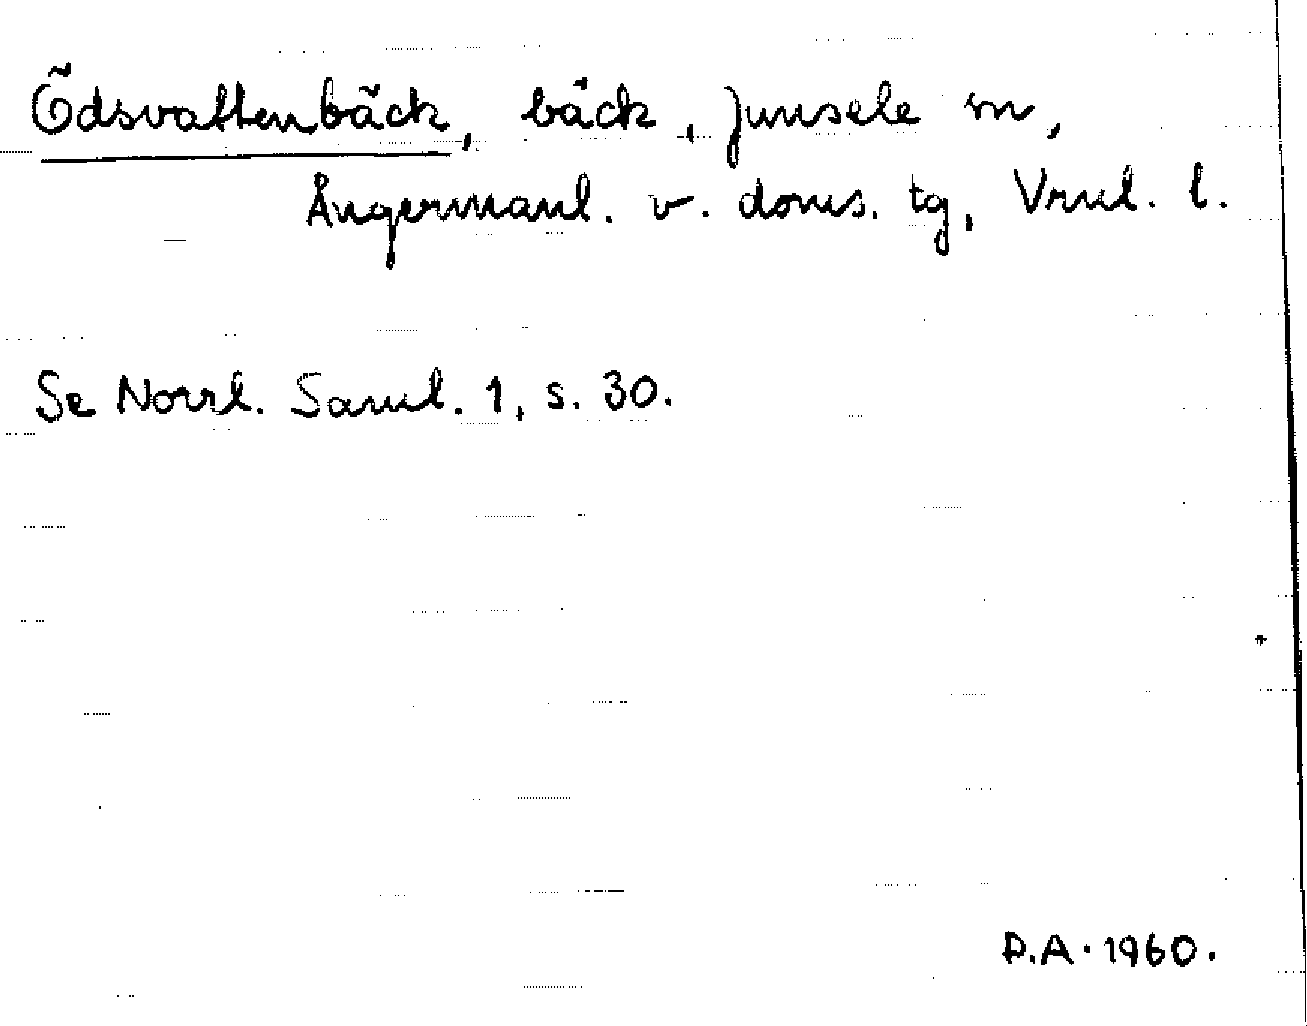 Ödsvattenbäck, bäck, Junsele sn,
Ångermanl. v. doms. tg, Vrnl. l.
Se Norrl. Saml. 1, s. 30.
P.A. 1960.